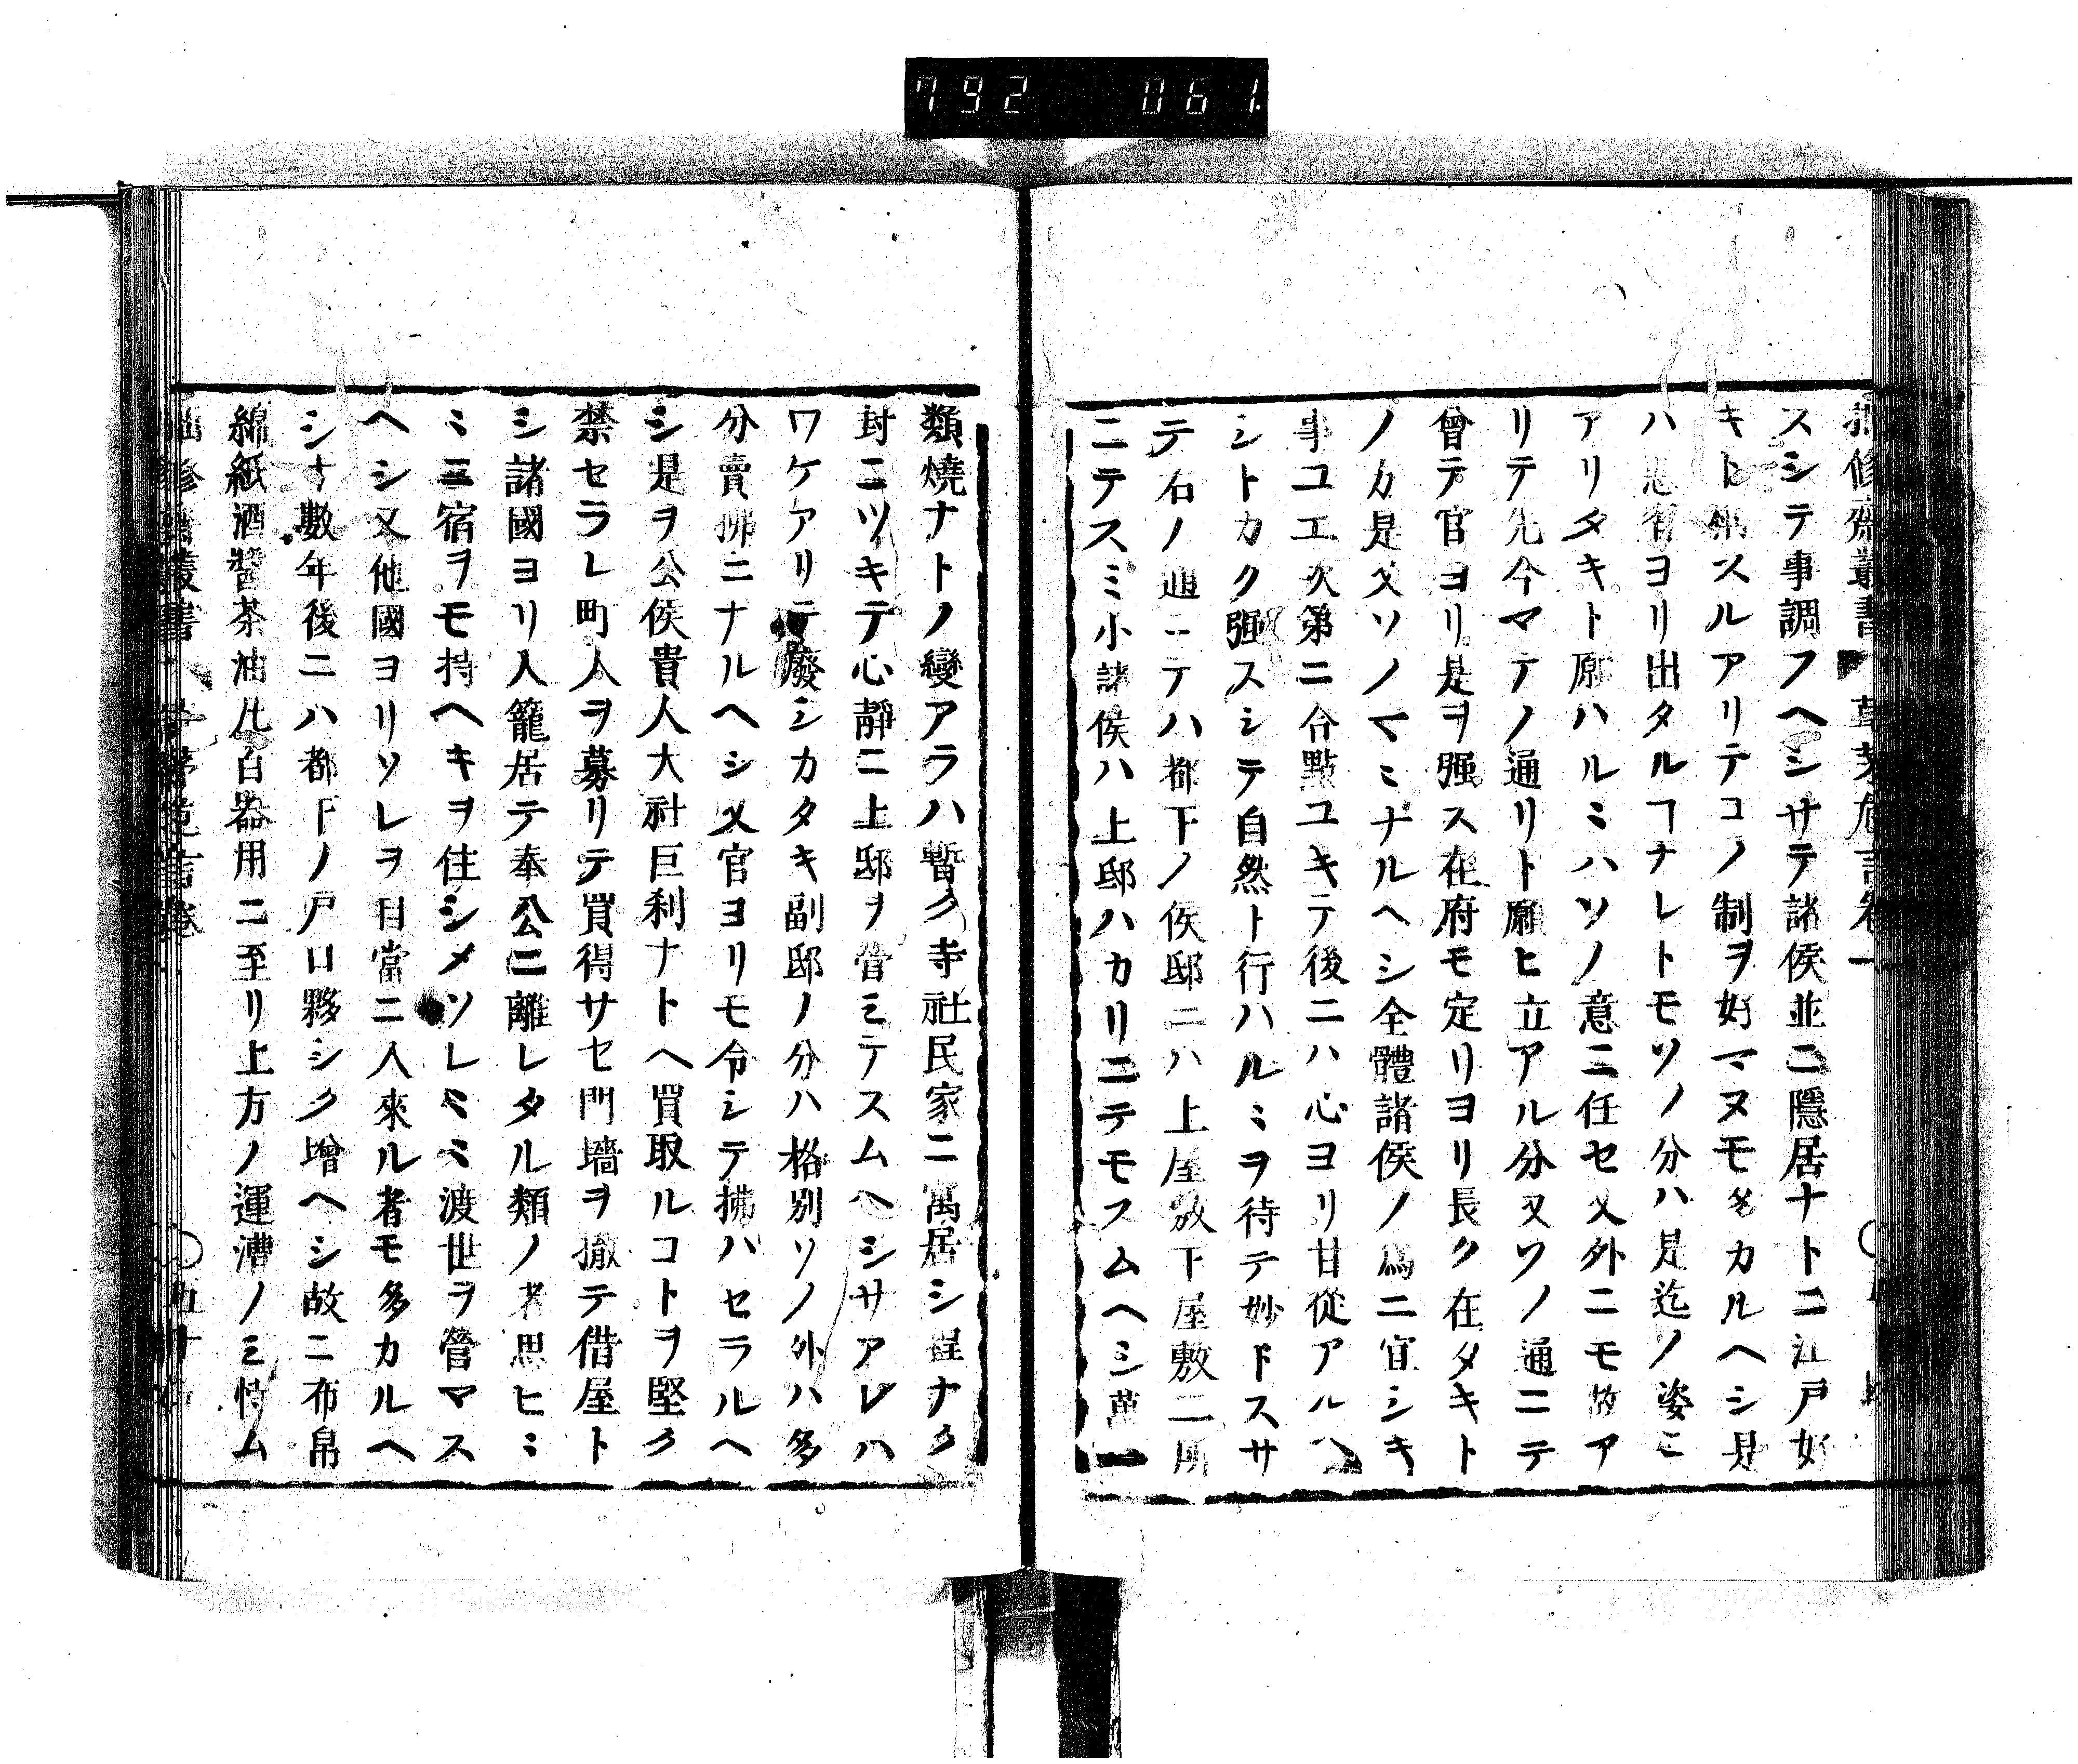 792 061
拙修齋叢書 草茅危言卷一
スシテ事調フヘシサテ諸侯並ニ隱居ナトニ江戸好
キト稱スルアリテコノ制ヲ好マヌモ多カルヘシ是
ハ思召ヨリ出タルヿナレトモソノ分ハ是迄ノ姿ニ
アリタキト原ハルミハソノ意ニ任セ又外ニモ故ア
リテ先今マテノ通リト願ヒ立アル分又ソノ通ニテ
曾テ官ヨリ是ヲ强ス在府モ定リヨリ長ク在タキト
ノカ是又ソノマミナルヘシ全體諸侯ノ爲ニ宜シキ
事ユエ次第ニ合點ユキテ後ニハ心ヨリ甘從アルヘ
シトカク强スシテ自然ト行ハルミヲ待テ妙トスサ
テ右ノ通ニテハ都下ノ侯邸ニハ上屋敷下屋敷二所
ニテスミ小諸侯ハ上邸ハカリニテモスムヘシ萬一
類燒ナトノ變アラハ暫ク寺社民家ニ寓居シ程ナク
封ニツキテ心靜ニ上邸ヲ營ミテスムヘシサアレハ
ワケアリテ廢シカタキ副邸ノ分ハ格別ソノ外ハ多
分賣拂ニナルヘシ又官ヨリモ令シテ拂ハセラルヘ
シ是ヲ公侯貴人大社巨刹ナトヘ買取ルコトヲ堅ク
禁セラレ町人ヲ募リテ買得サセ門墻ヲ撤テ借屋ト
シ諸國ヨリ入籠居テ奉公ニ離レタル類ノ者思ヒミ
ミニ宿ヲモ持ヘキヲ住シメソレミミ渡世ヲ營マス
ヘシ又他國ヨリソレヲ目當ニ入來ル者モ多カルヘ
シナ數年後ニハ都下ノ戸口夥シク增ヘシ故ニ布帛
綿紙酒醬茶油凡百器用ニ至リ上方ノ運漕ノミ恃ム
拙修齋叢書 草茅危言卷